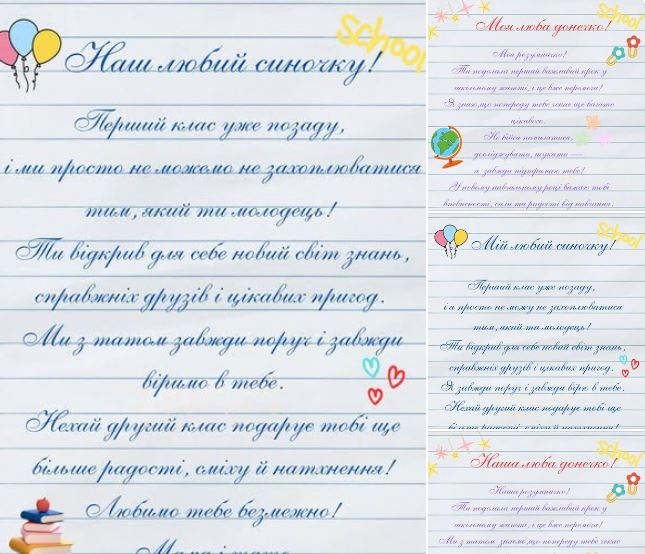 school
Наш любий синочку!
Перший клас уже позаду,
і ми просто не можемо не захоплюватися
тим, який ти молодець!
Ти відкрив для себе новий світ знань,
справжніх друзів і цікавих пригод.
Ми з татом завжди поруч і завжди
віримо в тебе.
Нехай другий клас подарує тобі ще
більше радості, сміху й натхнення!
Любимо тебе безмежно!
Мама і тато
school
Моя люба донечко!
Моя розумничко!
Ти подолала перший важливий крок у
шкільному житті, і це вже перемога!
Я знаю, що попереду тебе чекає ще багато
цікавого.
Не бійся помилятися,
досліджувати, шукати —
я завжди підтримаю тебе!
У новому навчальному році бажаю тобі
впевненості, сили та радості від навчання.
school
Мій любий синочку!
Перший клас уже позаду,
і я просто не можу не захоплюватися
тим, який ти молодець!
Ти відкрив для себе новий світ знань,
справжніх друзів і цікавих пригод.
Я завжди поруч і завжди вірю в тебе.
Нехай другий клас подарує тобі ще
більше радості, сміху й натхнення!
school
Наша люба донечко!
Наша розумничко!
Ти подолала перший важливий крок у
шкільному житті, і це вже перемога!
Ми з татом знаємо, що попереду тебе чекає